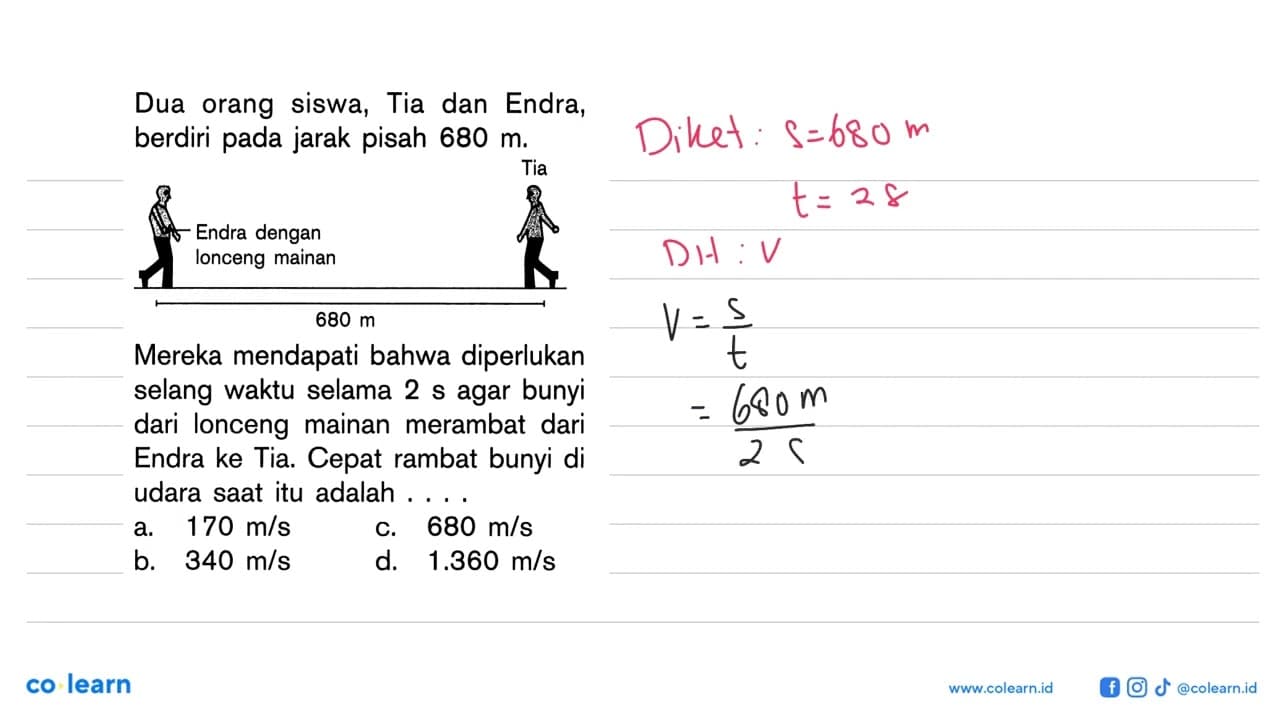 Dua orang siswa, Tia dan Endra,
berdiri pada jarak pisah 680 m.
Tia
Endra dengan
lonceng mainan
680 m
Mereka mendapati bahwa diperlukan
selang waktu selama 2 s agar bunyi
dari lonceng mainan merambat dari
Endra ke Tia. Cepat rambat bunyi di
udara saat itu adalah . . . .
a. 170 m/s c. 680 m/s
b. 340 m/s d. 1.360 m/s
Diket : s = 680 m
t = 2 s
DH : V
V = s
t
= 680 m
2 s
co learn
www.colearn.id
@colearn.id